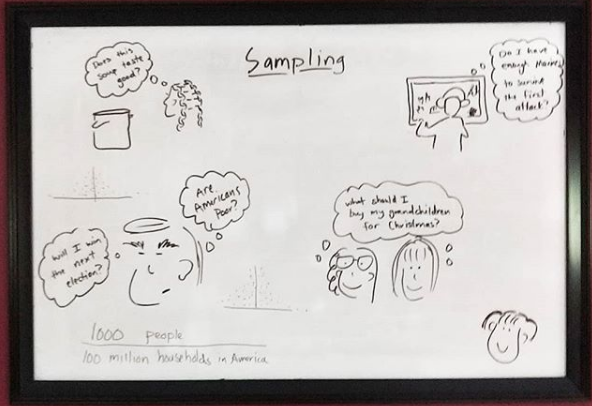 Sampling
Does this
soup taste
good?
Do I have
enough Marines
to survive
the first
attack?
Are
Americans
Poor?
Will I win
the next
election?
what should I
buy my grandchildren
for Christmas?
1000 people
100 million households in America